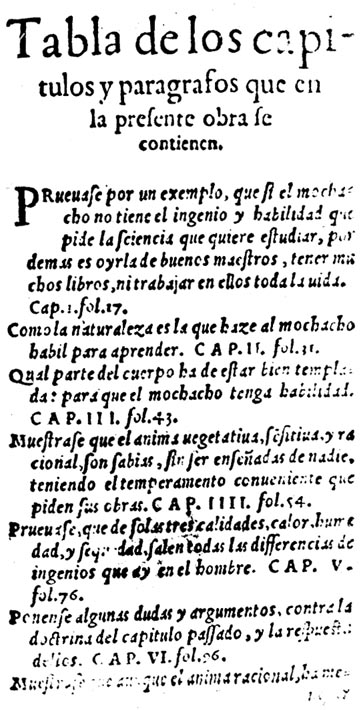 Tabla de los capi-
tulos y paragrafos que en
la presente obra se
contienen.
PRueuase por un exemplo, que si el mocha-
cho no tiene el ingenio y habilidad que
pide la sciencia que quiere estudiar, por
demas es oyrla de buenos maestros, tener mu
chos libros, ni trabajar en ellos toda la uida.
Cap.1.fol.17.
Como la naturaleza es la que haze al mochacho
habil para aprender. CAP.II. fol.31.
Qual parte del cuerpo ha de estar bien templa-
da: para que el mochacho tenga habilidad.
CAP.III. fol.43.
Muestrase que el anima uegetatiua, sēsitiua, y ra
cional, son sabias, sin ser enseñadas de nadie,
teniendo el temperamento conueniente que
piden sus obras. CAP. IIII. fol.54.
Prueuase, que de solas tres calidades, calor, hume
dad, y sequedad, salen todas las differencias de
ingenios que ay en el hombre. CAP. V.
fol.76.
Ponense algunas dudas y argumentos, contra la
doctrina del capitulo passado, y la respuesta
dellos. CAP. VI. fol.96.
Muestrase que aunque el anima racional, ha me-